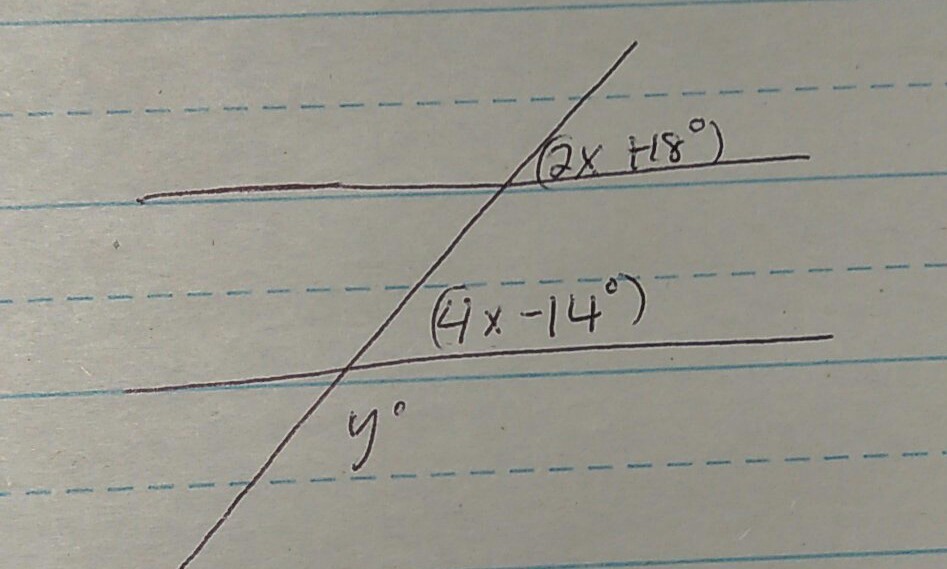 (2x +18°)
(4x -14°)
y°